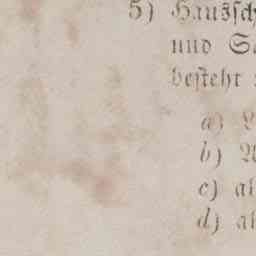 5) Haussch
und S
besteht
a)
b) A
c) al
d) al